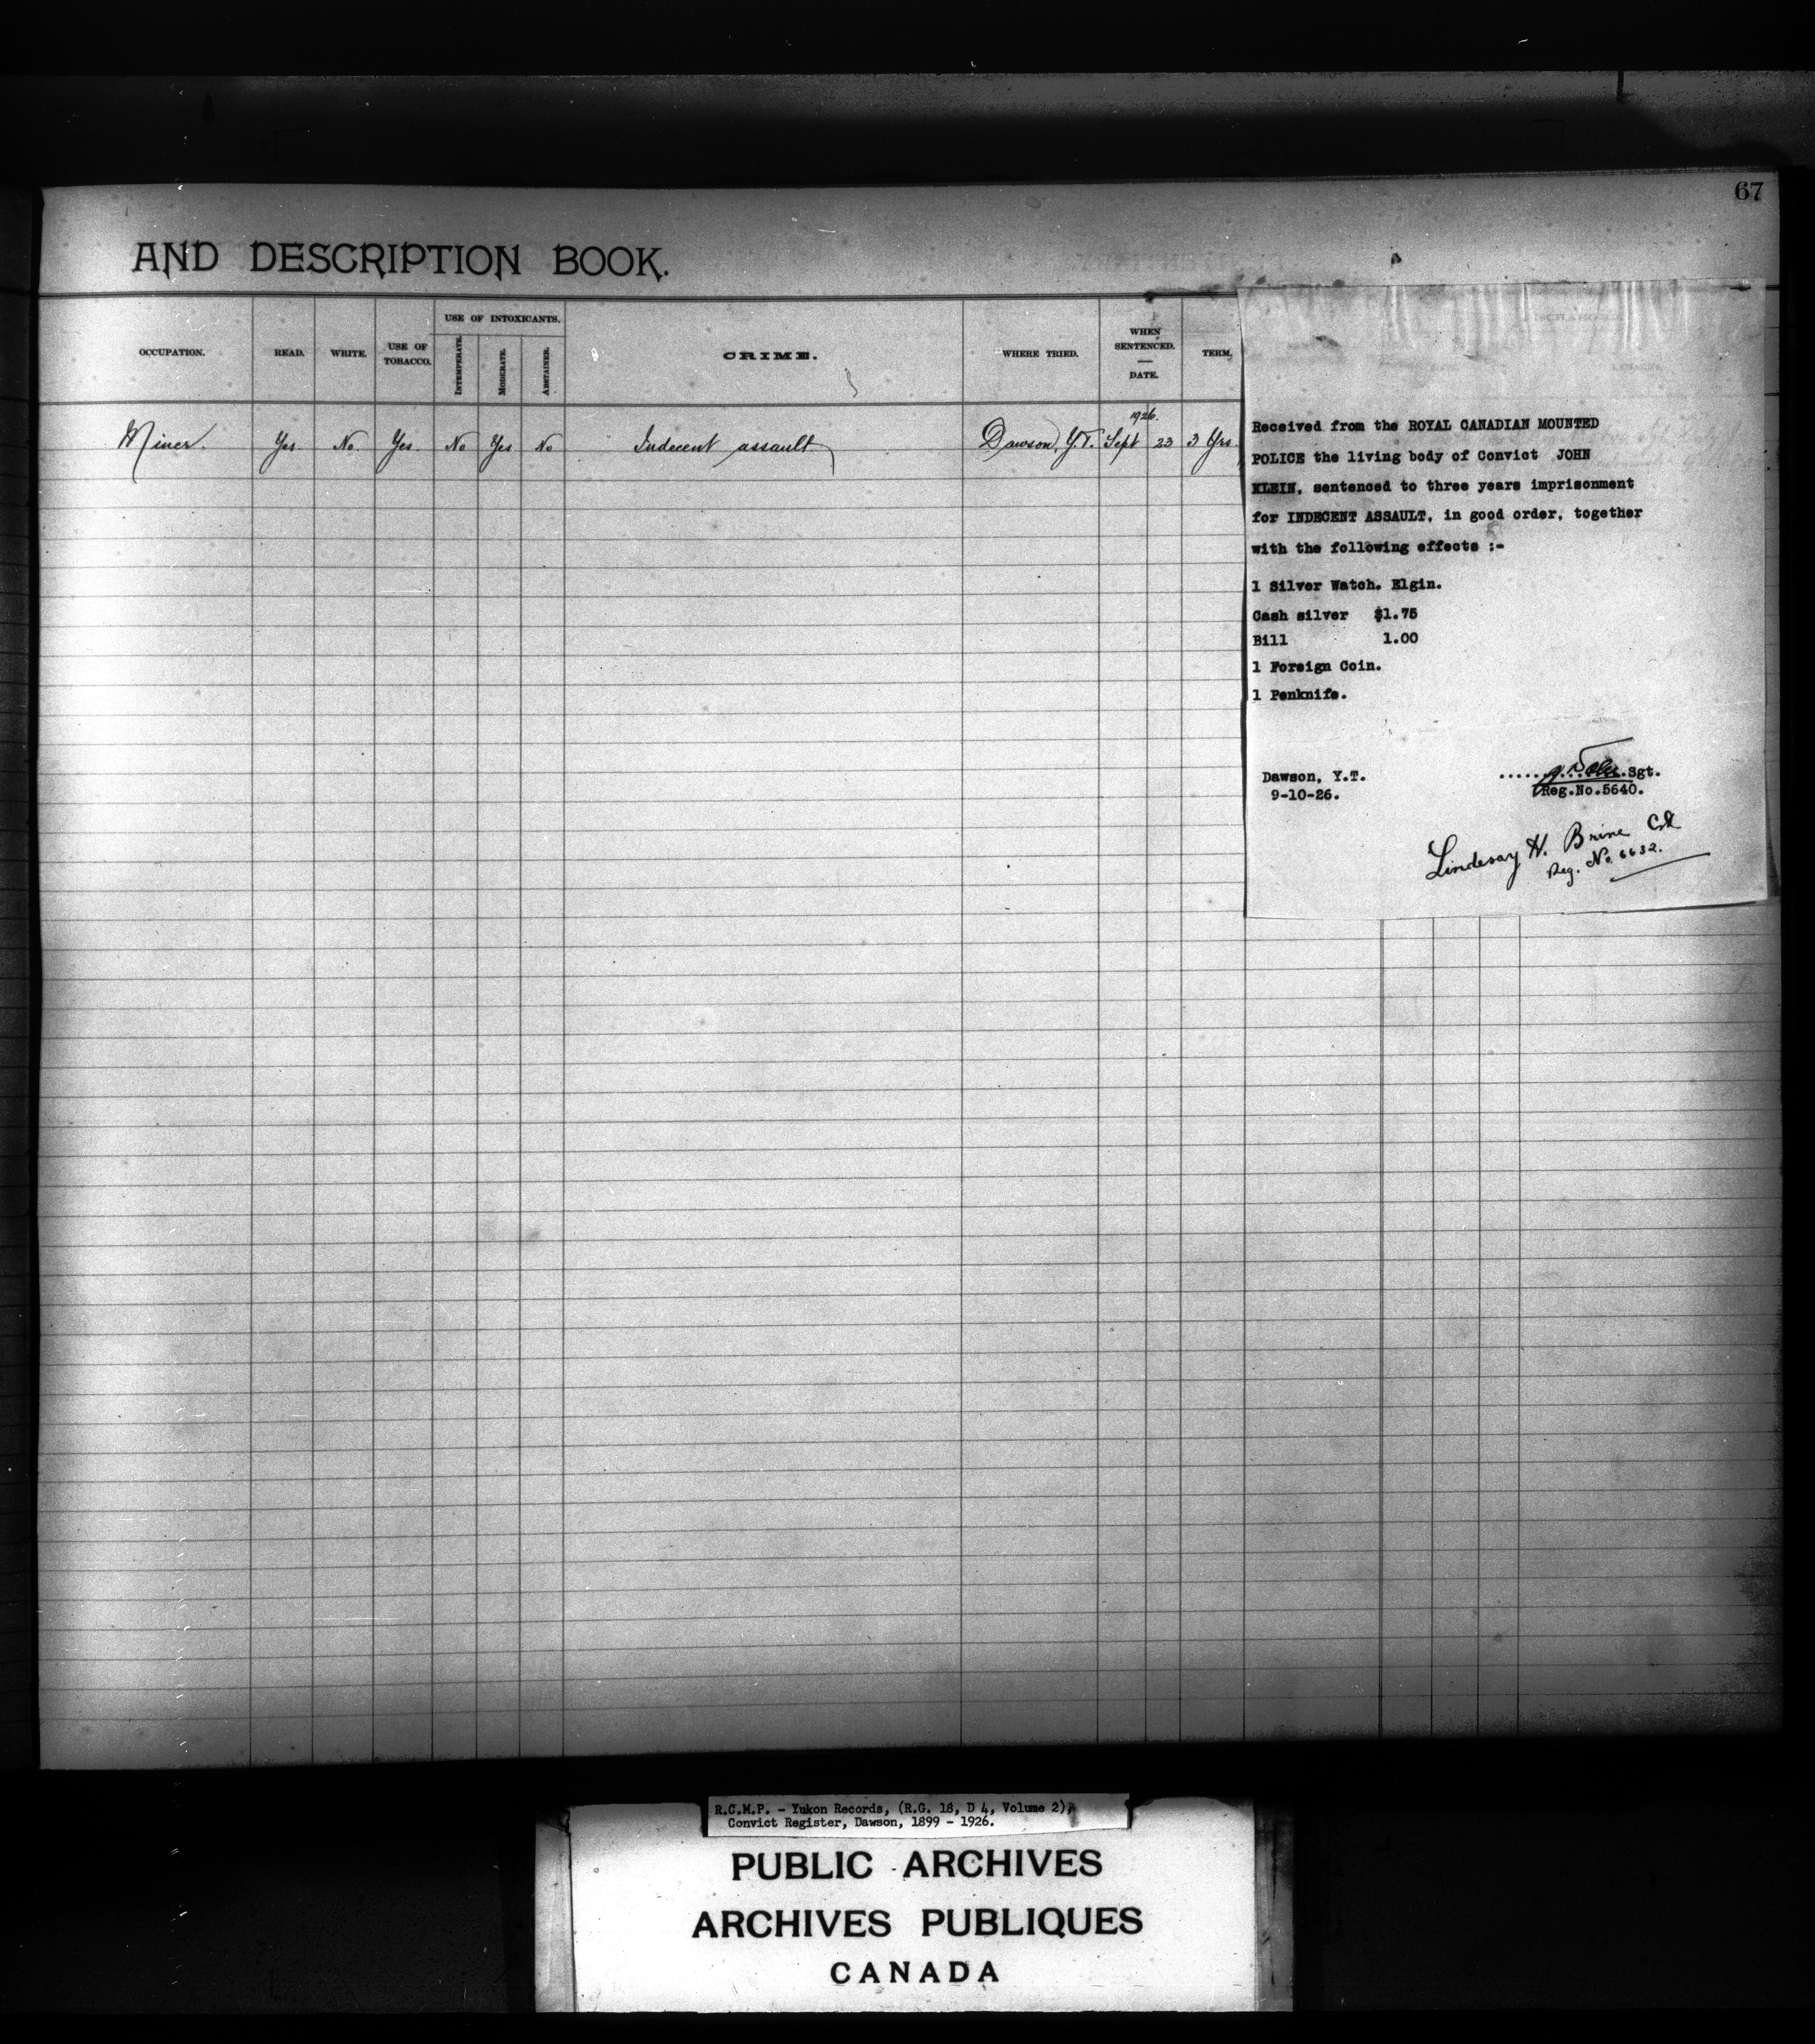 67
AND DESCRIPTION BOOK.
OCCUPATION. READ. WRITE. USE OF TOBACCO. USE OF INTOXICANTS. INTEMPERATE. MODERATE. ABSTAINER. CRIME. WHERE TRIED. WHEN SENTENCED. — DATE. TERM.
1926.
Miner. Yes. No. Yes. No Yes No Indecent assault Dawson, Y.T. Sept 23 3 Yrs.
Received from the ROYAL CANADIAN MOUNTED
POLICE the living body of Convict JOHN
KLEIN, sentenced to three years imprisonment
for INDECENT ASSAULT, in good order, together
with the following effects :-
1 Silver Watch. Elgin.
Cash silver $1.75
Bill 1.00
1 Foreign Coin.
1 Penknife.
Dawson, Y.T. Sgt.
9-10-26. Reg.No.5640.
Lindesay H. Brine Cst
Reg. No. 6632.
R.C.M.P. - Yukon Records, (R.G. 18, D 4, Volume 2),
Convict Register, Dawson, 1899 - 1926.
PUBLIC ARCHIVES
ARCHIVES PUBLIQUES
CANADA